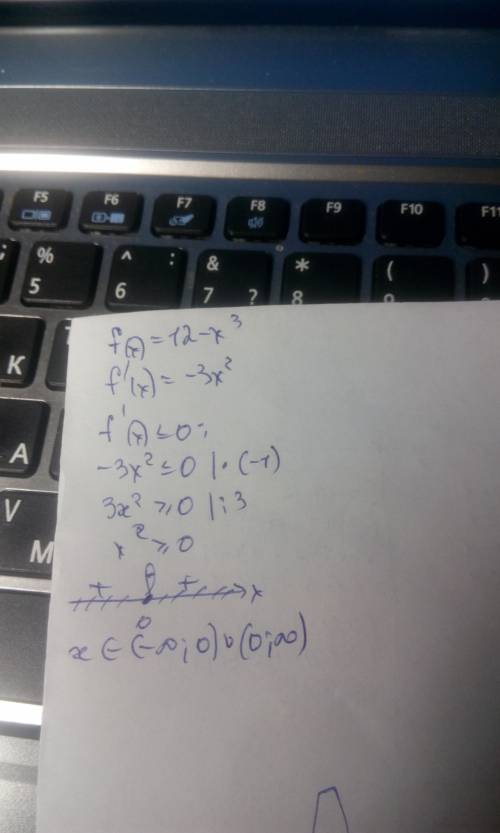 F5 F6 F7 F8 F9 F10 F11
% 5 ^ 6 : & 7 ? * 8 ( 9 )
K
A
V
M
f(x) = 12 - x³
f'(x) = -3x²
f'(x) ≤ 0;
-3x² ≤ 0 | · (-1)
3x² ≥ 0 | : 3
x² ≥ 0
+ + x
0
x ∈ (-∞; 0) ∪ (0; ∞)